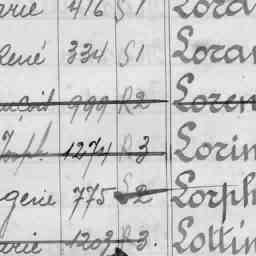 arie 416 S 1 Lora
René 334 S 1 Lorar
ançois 999 R2 Loren
Josph. 1274 R3 Lorin
gerie 775 S2 Lorph
arie 1203 R3. Lottin